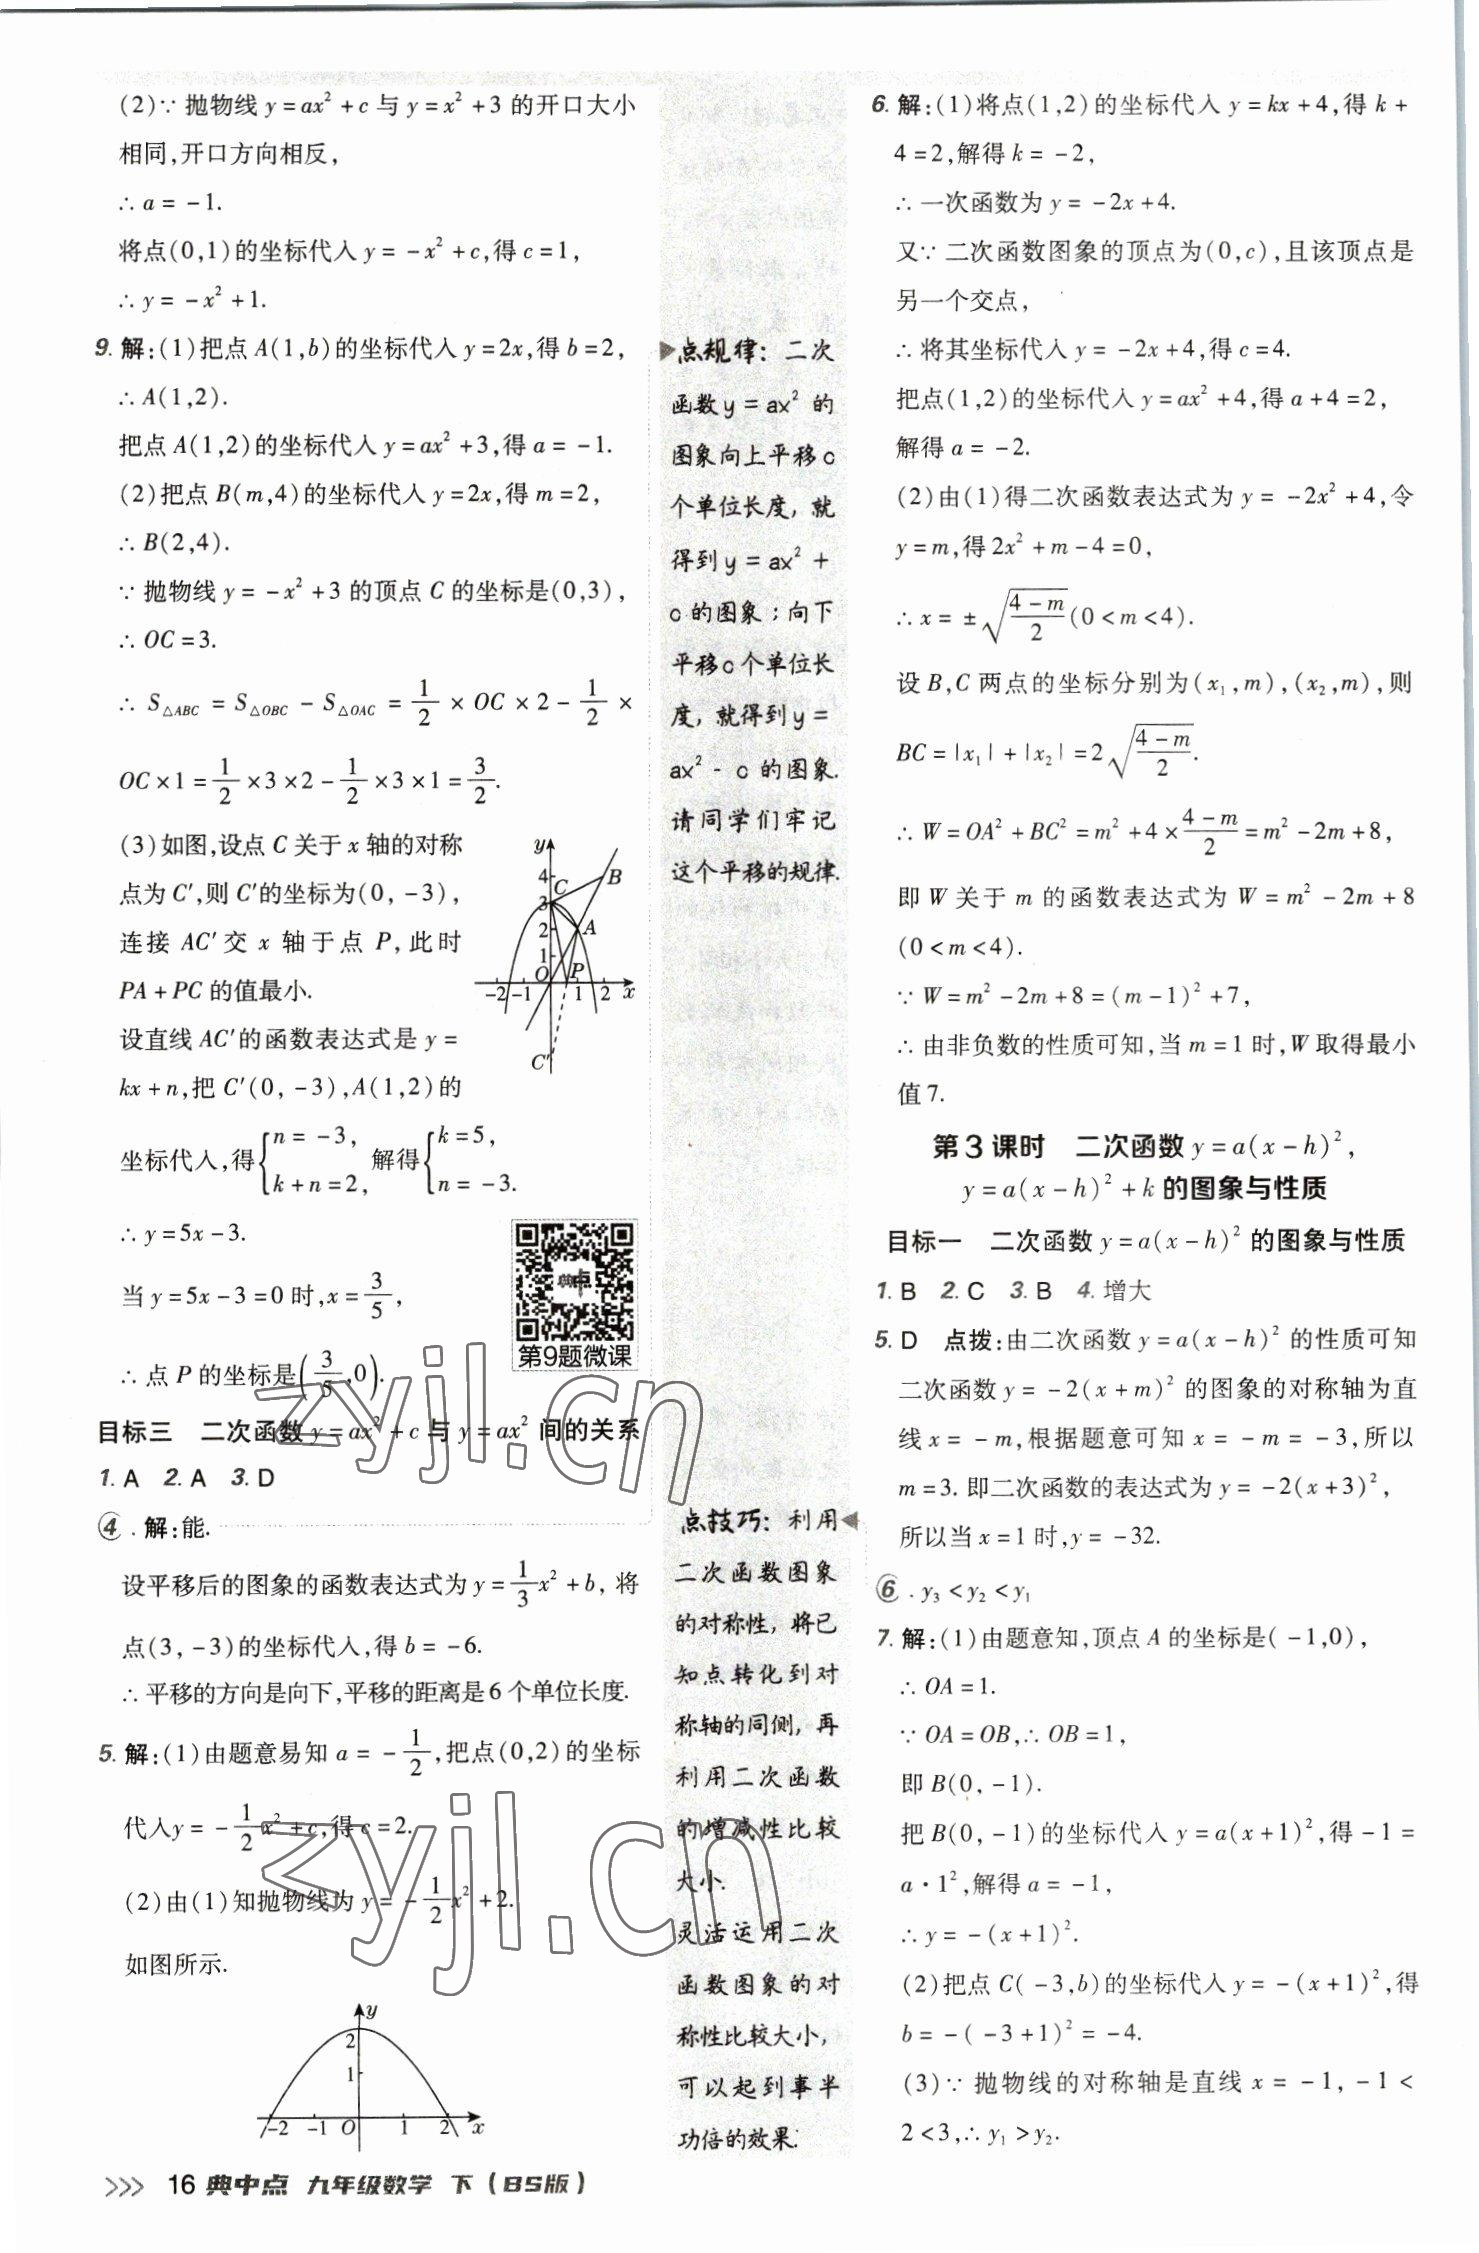 (2)∵ 抛物线 y=ax²+c 与 y=x²+3 的开口大小
相同,开口方向相反,
∴ a=-1.
将点(0,1)的坐标代入 y=-x²+c,得 c=1,
∴ y=-x²+1.
9. 解:(1)把点 A(1,b)的坐标代入 y=2x,得 b=2,
∴ A(1,2).
把点 A(1,2)的坐标代入 y=ax²+3,得 a=-1.
(2)把点 B(m,4)的坐标代入 y=2x,得 m=2,
∴ B(2,4).
∵ 抛物线 y=-x²+3 的顶点 C 的坐标是(0,3),
∴ OC=3.
∴ S△ABC = S△OBC - S△OAC = 1/2 × OC × 2 - 1/2 ×
OC×1 = 1/2 ×3×2 - 1/2 ×3×1 = 3/2.
(3)如图,设点 C 关于 x 轴的对称
点为 C′,则 C′的坐标为(0,-3),
连接 AC′交 x 轴于点 P,此时
PA+PC 的值最小.
设直线 AC′的函数表达式是 y=
kx+n,把 C′(0,-3),A(1,2)的
坐标代入,得{n=-3, k+n=2, 解得{k=5, n=-3.
∴ y=5x-3.
当 y=5x-3=0 时,x=3/5,
∴ 点 P 的坐标是(3/5,0).
y
4
3
2
1
C
B
A
O
P
-2 -1 1 2 x
C′
典中点
第9题微课
目标三 二次函数 y=ax²+c 与 y=ax² 间的关系
1. A 2. A 3. D
④. 解:能.
设平移后的图象的函数表达式为 y=1/3x²+b,将
点(3,-3)的坐标代入,得 b=-6.
∴ 平移的方向是向下,平移的距离是6个单位长度.
5. 解:(1)由题意易知 a=-1/2,把点(0,2)的坐标
代入y=-1/2x²+c,得 c=2.
(2)由(1)知抛物线为 y=-1/2x²+2.
如图所示.
y
2
1
-2 -1 O 1 2 x
点规律: 二次
函数 y=ax² 的
图象向上平移c
个单位长度, 就
得到 y=ax²+
c 的图象; 向下
平移c个单位长
度, 就得到 y=
ax²-c 的图象.
请同学们牢记
这个平移的规律.
点技巧: 利用
二次函数图象
的对称性, 将已
知点转化到对
称轴的同侧, 再
利用二次函数
的增减性比较
大小.
灵活运用二次
函数图象的对
称性比较大小,
可以起到事半
功倍的效果.
6. 解:(1)将点(1,2)的坐标代入 y=kx+4,得 k+
4=2,解得 k=-2,
∴ 一次函数为 y=-2x+4.
又∵ 二次函数图象的顶点为(0,c),且该顶点是
另一个交点,
∴ 将其坐标代入 y=-2x+4,得 c=4.
把点(1,2)的坐标代入 y=ax²+4,得 a+4=2,
解得 a=-2.
(2)由(1)得二次函数表达式为 y=-2x²+4,令
y=m,得 2x²+m-4=0,
∴ x=±√((4-m)/2)(0<m<4).
设 B,C 两点的坐标分别为(x₁,m),(x₂,m),则
BC=|x₁|+|x₂|=2√((4-m)/2).
∴ W=OA²+BC²=m²+4×(4-m)/2=m²-2m+8,
即 W 关于 m 的函数表达式为 W=m²-2m+8
(0<m<4).
∵ W=m²-2m+8=(m-1)²+7,
∴ 由非负数的性质可知,当 m=1 时,W 取得最小
值 7.
第3课时 二次函数 y=a(x-h)²,
y=a(x-h)²+k 的图象与性质
目标一 二次函数 y=a(x-h)² 的图象与性质
1. B 2. C 3. B 4. 增大
5. D 点拨:由二次函数 y=a(x-h)² 的性质可知
二次函数 y=-2(x+m)² 的图象的对称轴为直
线 x=-m,根据题意可知 x=-m=-3,所以
m=3. 即二次函数的表达式为 y=-2(x+3)²,
所以当 x=1 时,y=-32.
⑥. y₃<y₂<y₁
7. 解:(1)由题意知,顶点 A 的坐标是(-1,0),
∴ OA=1.
∵ OA=OB,∴ OB=1,
即 B(0,-1).
把 B(0,-1)的坐标代入 y=a(x+1)²,得 -1=
a·1²,解得 a=-1,
∴ y=-(x+1)².
(2)把点 C(-3,b)的坐标代入 y=-(x+1)²,得
b=-(-3+1)²=-4.
(3)∵ 抛物线的对称轴是直线 x=-1,-1<
2<3,∴ y₁>y₂.
16 典中点 九年级数学 下(BS版)
zyjl.cn
zyjl.cn